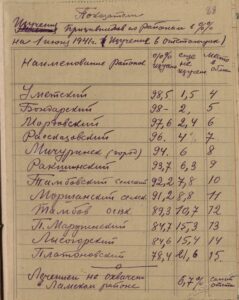 Показатели
29
Изучения Крайвидив по районам в %
на 1 июня 1941 г.
Наименование районов % изуч. еще не изучено место в обл.
Уметский 98,5 1,5 4
Бондарский 98 - 2, 5
Мордовский 97,6 2,4 6
Рассказовский 96. 4 7
Мичуринск (город) 94. 6 8
Ракшинский 93,7 6,3 9
Тамбовский сельский 92,2 7,8 10
Моршанский сельск 91,2 8,8 11
Тамбов 89,3 10,7 12
П. Марфинский 84,7 15,3 13
Лысогорский 84,6 15,4 14
Платоновский 78,4 21,6 15
не охвачен
Ламском районе 0,7%